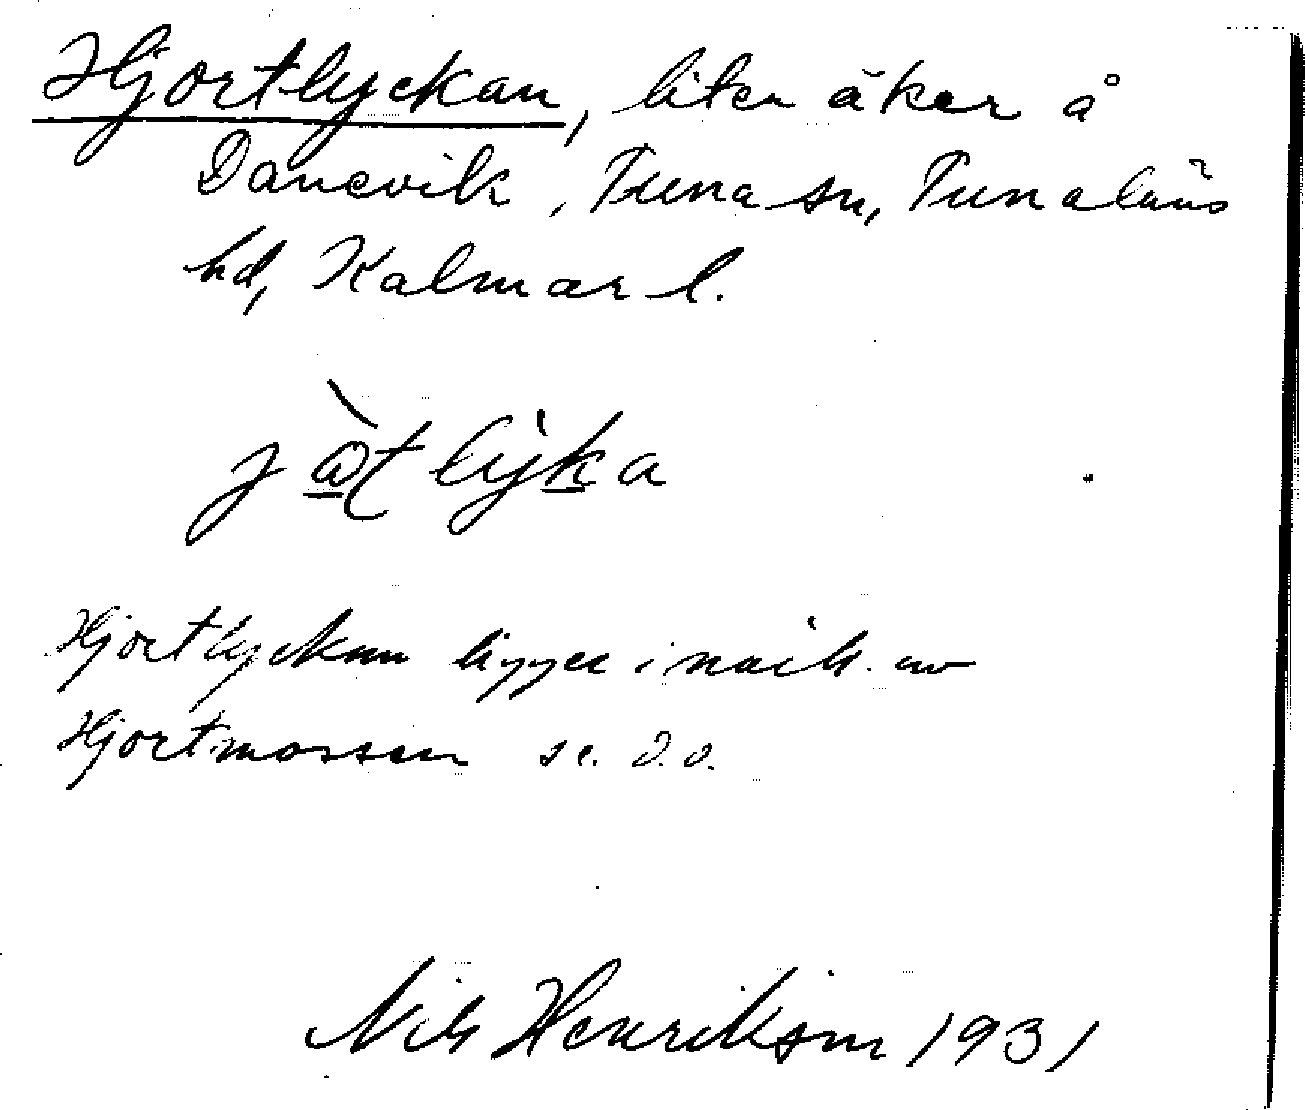 Hjortlyckan, liten åker å
Danevik, Tuna sn, Tunaläns
hd, Kalmar l.
Hjortlyckan ligger i närh. av
Hjortmossen se. d.o.
Nils Henrikson 1931